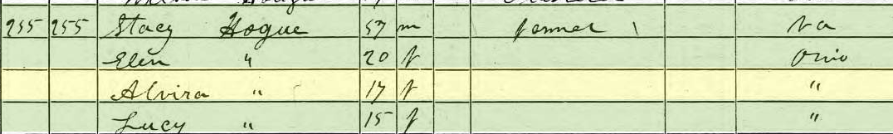 255 255 Stacy Hogue 57 m farmer 1 Va
Elen " 20 f Ohio
Alvira " 17 f "
Lucy " 15 f "